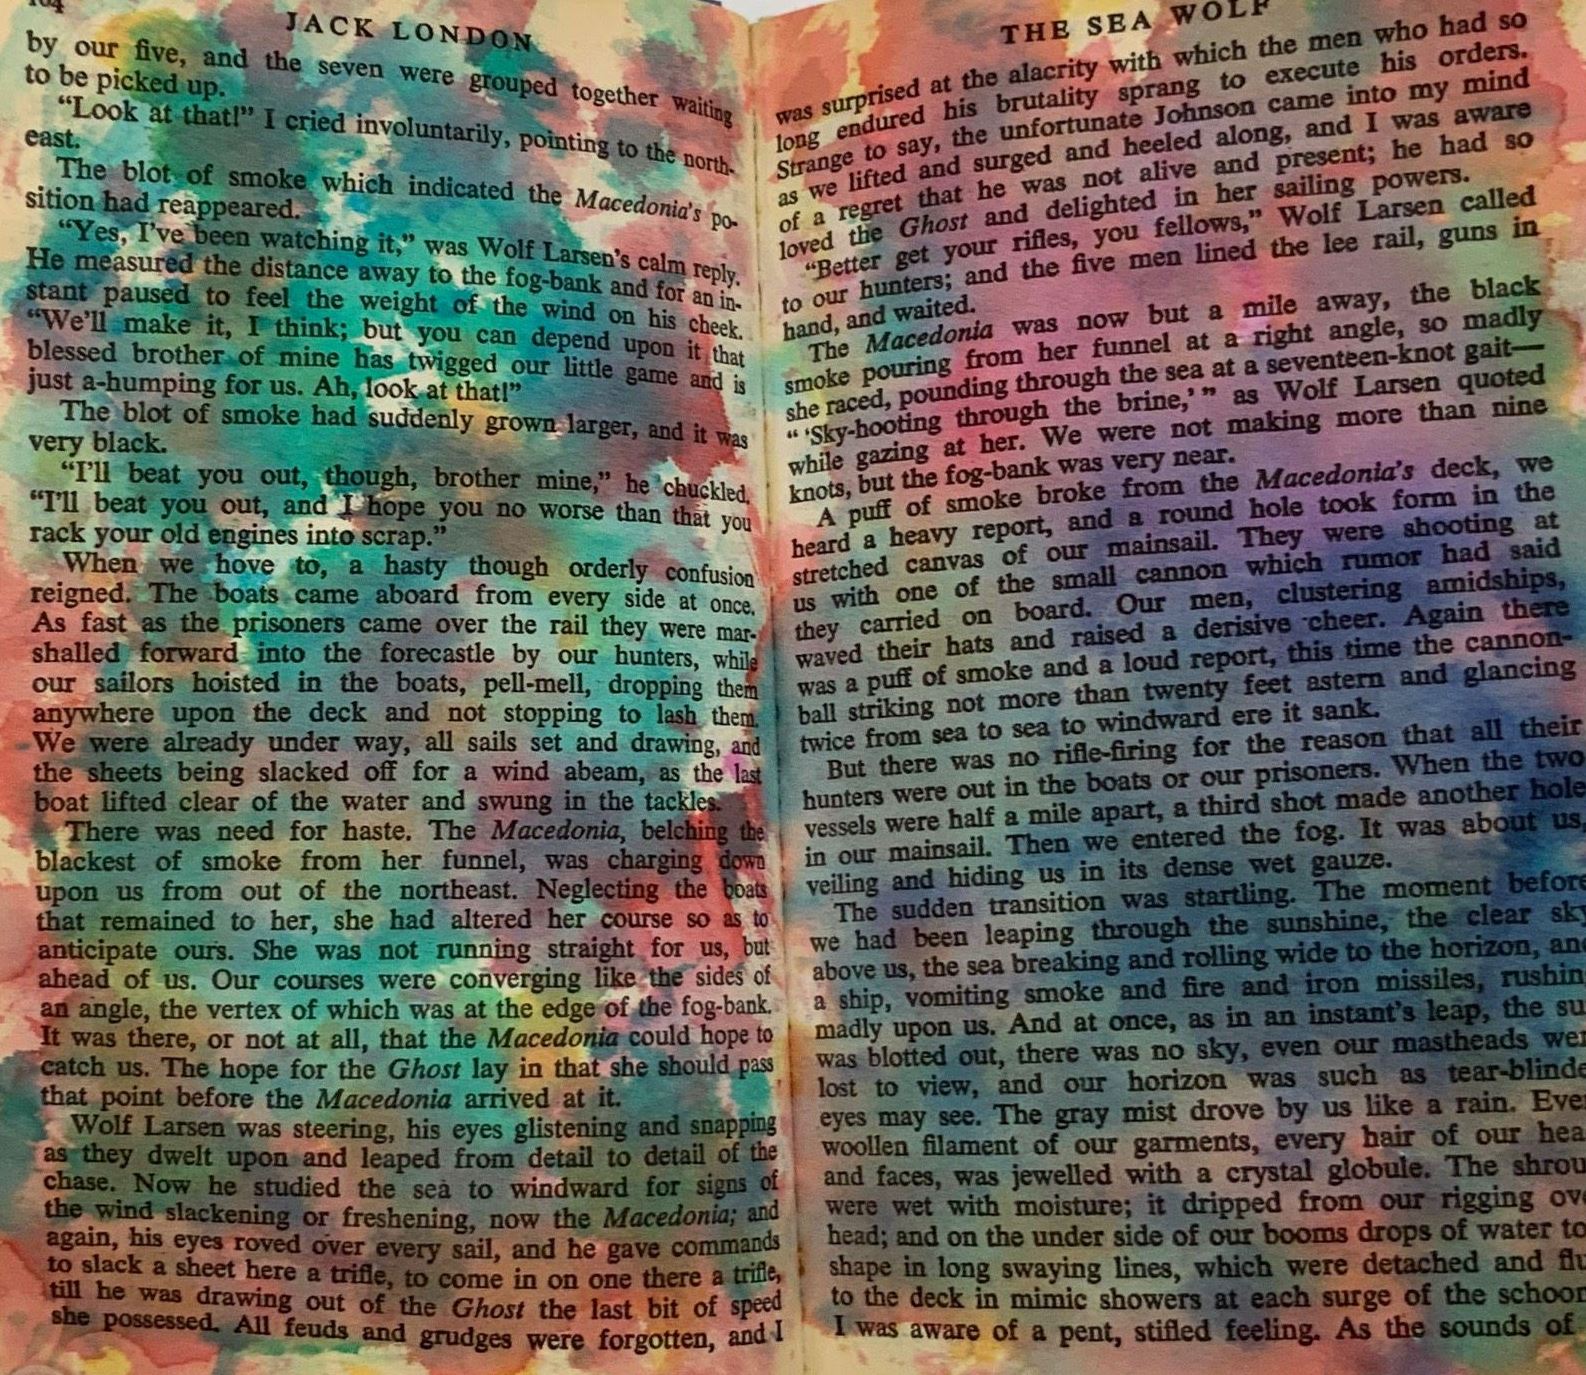 JACK LONDON
by our five, and the seven were grouped together waiting
to be picked up.
"Look at that!" I cried involuntarily, pointing to the north-
east.
The blot of smoke which indicated the Macedonia's po-
sition had reappeared.
"Yes, I've been watching it," was Wolf Larsen's calm reply.
He measured the distance away to the fog-bank and for an in-
stant paused to feel the weight of the wind on his cheek.
"We'll make it, I think; but you can depend upon it that
blessed brother of mine has twigged our little game and is
just a-humping for us. Ah, look at that!"
The blot of smoke had suddenly grown larger, and it was
very black.
"I'll beat you out, though, brother mine," he chuckled.
"I'll beat you out, and I hope you no worse than that you
rack your old engines into scrap."
When we hove to, a hasty though orderly confusion
reigned. The boats came aboard from every side at once.
As fast as the prisoners came over the rail they were mar-
shalled forward into the forecastle by our hunters, while
our sailors hoisted in the boats, pell-mell, dropping them
anywhere upon the deck and not stopping to lash them.
We were already under way, all sails set and drawing, and
the sheets being slacked off for a wind abeam, as the last
boat lifted clear of the water and swung in the tackles.
There was need for haste. The Macedonia, belching the
blackest of smoke from her funnel, was charging down
upon us from out of the northeast. Neglecting the boats
that remained to her, she had altered her course so as to
anticipate ours. She was not running straight for us, but
ahead of us. Our courses were converging like the sides of
an angle, the vertex of which was at the edge of the fog-bank.
It was there, or not at all, that the Macedonia could hope to
catch us. The hope for the Ghost lay in that she should pass
that point before the Macedonia arrived at it.
Wolf Larsen was steering, his eyes glistening and snapping
as they dwelt upon and leaped from detail to detail of the
chase. Now he studied the sea to windward for signs of
the wind slackening or freshening, now the Macedonia; and
again, his eyes roved over every sail, and he gave commands
to slack a sheet here a trifle, to come in on one there a trifle,
till he was drawing out of the Ghost the last bit of speed
she possessed. All feuds and grudges were forgotten, and I
THE SEA WOLF
was surprised at the alacrity with which the men who had so
long endured his brutality sprang to execute his orders.
Strange to say, the unfortunate Johnson came into my mind
as we lifted and surged and heeled along, and I was aware
of a regret that he was not alive and present; he had so
loved the Ghost and delighted in her sailing powers.
"Better get your rifles, you fellows," Wolf Larsen called
to our hunters; and the five men lined the lee rail, guns in
hand, and waited.
The Macedonia was now but a mile away, the black
smoke pouring from her funnel at a right angle, so madly
she raced, pounding through the sea at a seventeen-knot gait—
"'Sky-hooting through the brine,'" as Wolf Larsen quoted
while gazing at her. We were not making more than nine
knots, but the fog-bank was very near.
A puff of smoke broke from the Macedonia's deck, we
heard a heavy report, and a round hole took form in the
stretched canvas of our mainsail. They were shooting at
us with one of the small cannon which rumor had said
they carried on board. Our men, clustering amidships,
waved their hats and raised a derisive cheer. Again there
was a puff of smoke and a loud report, this time the cannon-
ball striking not more than twenty feet astern and glancing
twice from sea to sea to windward ere it sank.
But there was no rifle-firing for the reason that all their
hunters were out in the boats or our prisoners. When the two
vessels were half a mile apart, a third shot made another hole
in our mainsail. Then we entered the fog. It was about us,
veiling and hiding us in its dense wet gauze.
The sudden transition was startling. The moment before
we had been leaping through the sunshine, the clear sky
above us, the sea breaking and rolling wide to the horizon, and
a ship, vomiting smoke and fire and iron missiles, rushin
madly upon us. And at once, as in an instant's leap, the su
was blotted out, there was no sky, even our mastheads wer
lost to view, and our horizon was such as tear-blinde
eyes may see. The gray mist drove by us like a rain. Ever
woollen filament of our garments, every hair of our hea
and faces, was jewelled with a crystal globule. The shrou
were wet with moisture; it dripped from our rigging ove
head; and on the under side of our booms drops of water to
shape in long swaying lines, which were detached and flu
to the deck in mimic showers at each surge of the schoon
I was aware of a pent, stifled feeling. As the sounds of